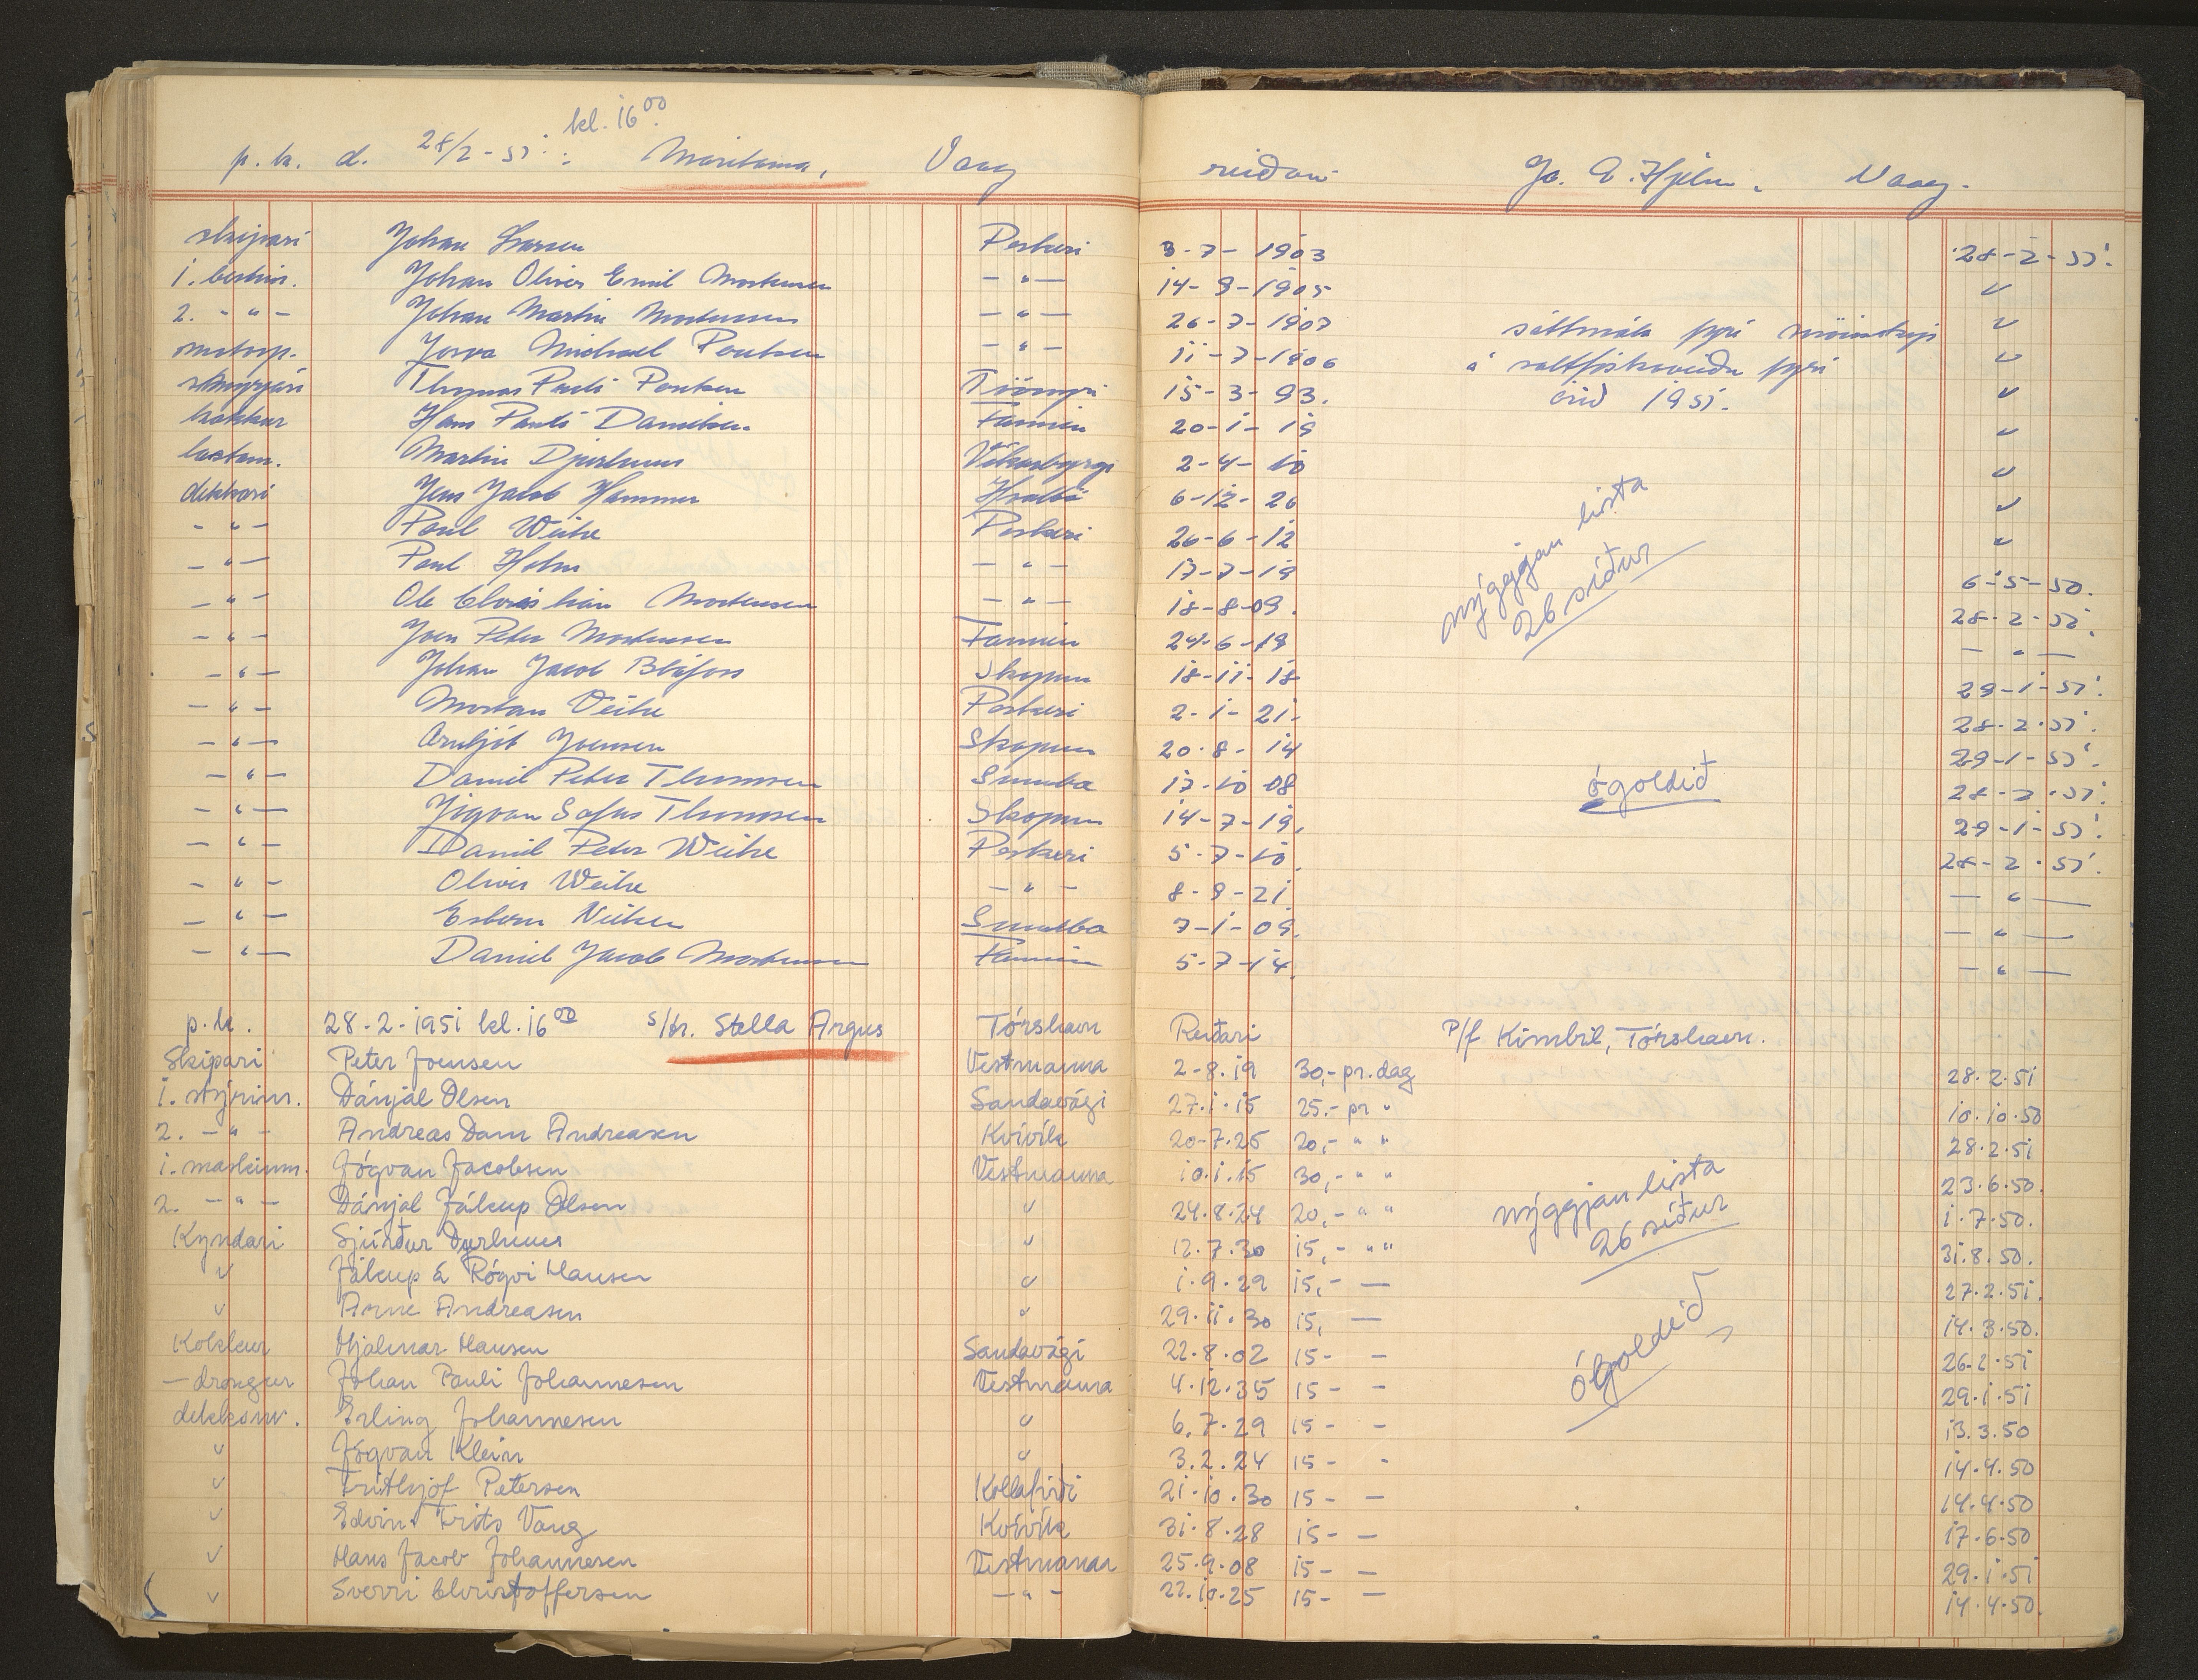 kl. 16 00
p. k. d. 28/2-51: Maritama, Vaag reiðari Jo. E. Hjelm. Vaag.
skipari Johan Larsen Porkeri 3-7-1903 28-2-51.
1. bestm. Johan Oliver Emil Mortensen -"- 14-9-1905 v
2. -"- Johan Martin Mortensen -"- 26-7-1907 v
motorp. Michael Poulsen -"- 11-7-1906 sáttmála fyri v
Thomas Pauli Poulsen 15-3-93. á saltfiskaveiðu fyri v
kokkur Hans Pauli Danielsen Famien 20-1-19 árið 1951. v
lastam. Martin Djurhuus Víkarbyrgi 2-4-10 v
dekkari Jens Jacob Hammer Hvalbø 6-12-26 v
-"- Poul Weihe Porkeri 26-6-12 v
-"- Poul Holm -"- 17-7-19 6-5-50.
-"- Ole Christian Mortensen -"- 18-8-09. 28-2-51.
nýggjan lista
26 síður
-"- Joen Peter Mortensen Famien 24-6-19 -"-
-"- Johan Jacob Bláfoss Skopun 18-11-18 29-1-51.
-"- Mortan Weihe Porkeri 2-1-21. 28-2-51.
-"- Arnljót Joensen Skopun 20-8-14 29-1-51.
-"- Daniel Peter Thomsen Sumba 17-10-08 28-2-51.
ógoldið
-"- Jógvan Sofus Thomsen Skopun 14-7-19. 29-1-51.
-"- Daniel Peter Weihe Porkeri 5-7-10. 28-2-51.
-"- Oliver Weihe -"- 8-9-21. -"-
-"- Esbern Sumba 7-1-09. -"-
-"- Daniel Jacob Mortensen Famien 5-7-14. -"-
p.k. 28-2-1951 kl. 16 00 s/tr. Stella Argus Tórshavn Reiðari P/f Kimbil, Tórshavn.
Skipari Peter Joensen Vestmanna 2-8.19 30,- pr. dag 28.2.51
1. stýrim. Dánjal Olsen Sandavági 27.1.15 25.- pr " 10.10.50
2. -"- Andreas Dam Andreasen Kvívík 20-7.25 20,- " " 28.2.51
1. maskinm. Jógvan Jacobsen Vestmanna 10.1.15 30,- " " 23.6.50.
2. -"- Dánjal Jákup Olsen v 24.8.24 20,- " " 1.7.50.
nýggjan lista
26 síður
Kyndari Sjúrður Dyrhuus v 12.7.30 15,- " " 31.8.50.
v Jákup E Rógvi Hansen v 1.9.29 15,- - 27.2.51.
v Arne Andreasen v 29.11.30 15, - 14.3.50.
Kokkur Hjalmar Hansen Sandavági 22.8.02 15- - 26.2.51
- drongur Johan Pauli Johannesen Vestmanna 4.12.35 15- - 29.1.51
ógoldið
dekksm. Erling Johannesen v 6.7.29 15- - 13.3.50
v Jógvan Klein v 3.2.24 15- - 14.4.50
v Frithjof Petersen Kollafirði 21.10.30 15- - 14.4.50
v Edvin Frits Vang Kvívík 31.8.28 15- - 17.6.50
v Hans Jacob Johannesen Vestmanna 25.9.08 15- - 29.1.51
v Sverri Christoffersen -"- 22.10.25 15- - 14.4.50.